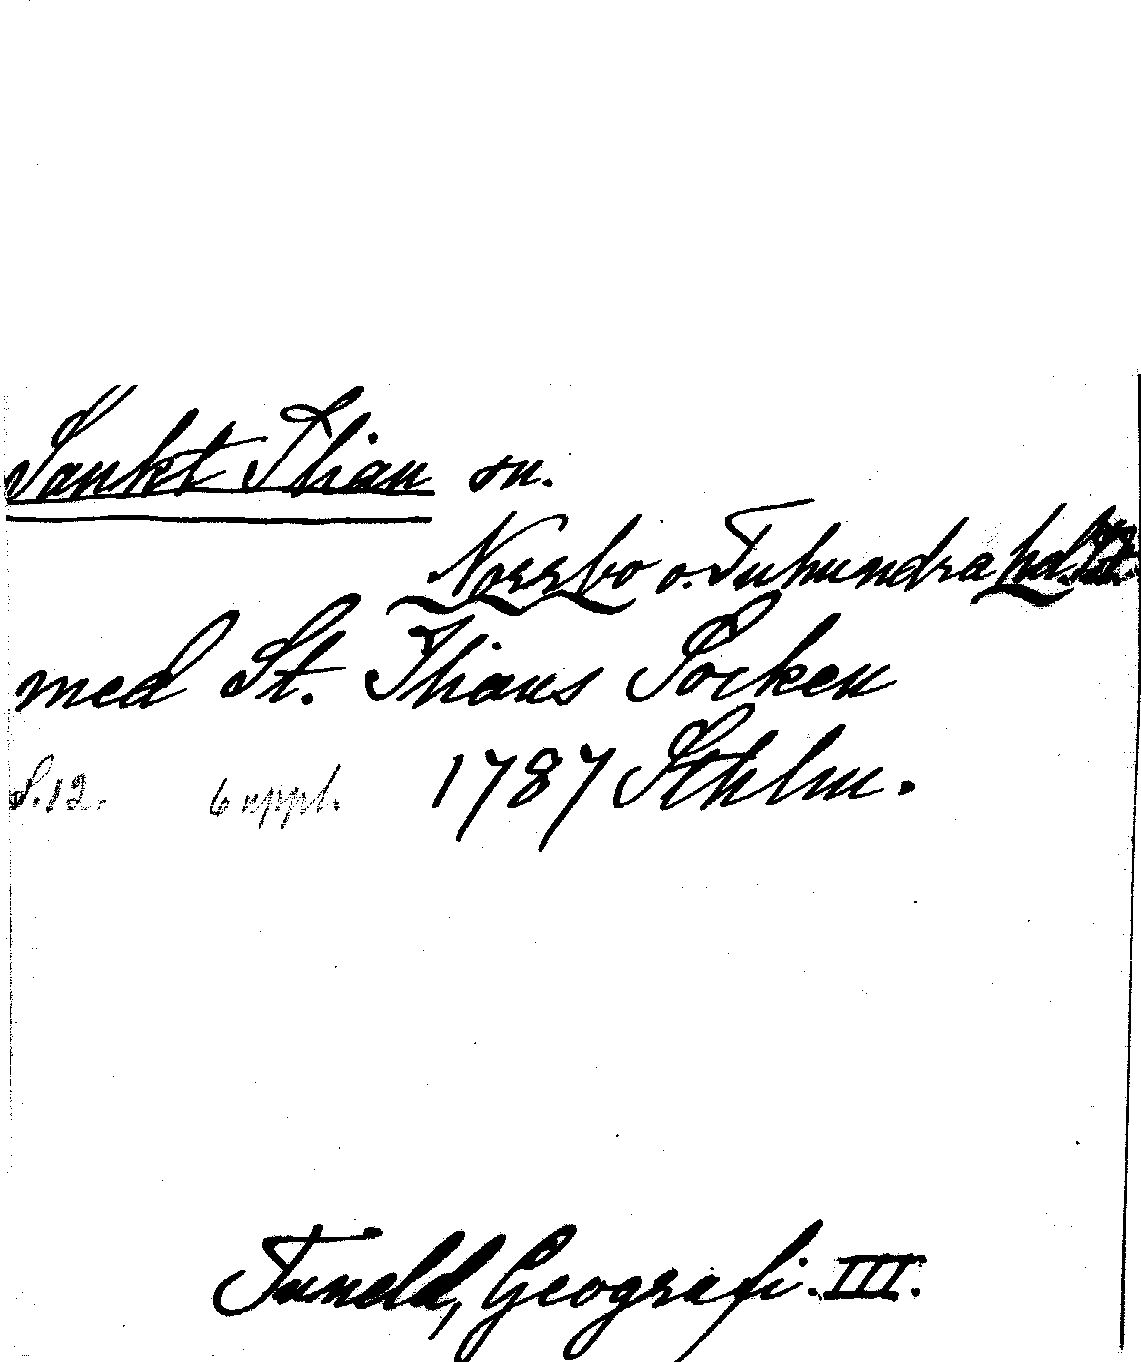 Sankt Ilian sn.
Norrbo o. Tuhundra hd.
med St. Ilians Socken
S.12. 6 uppl. 1787 Sthlm.
Tuneld, Geografi. III.